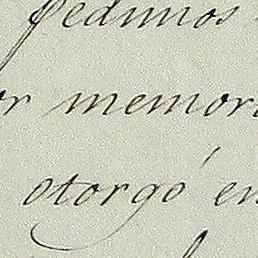 pedimos
or memor
otorgó en